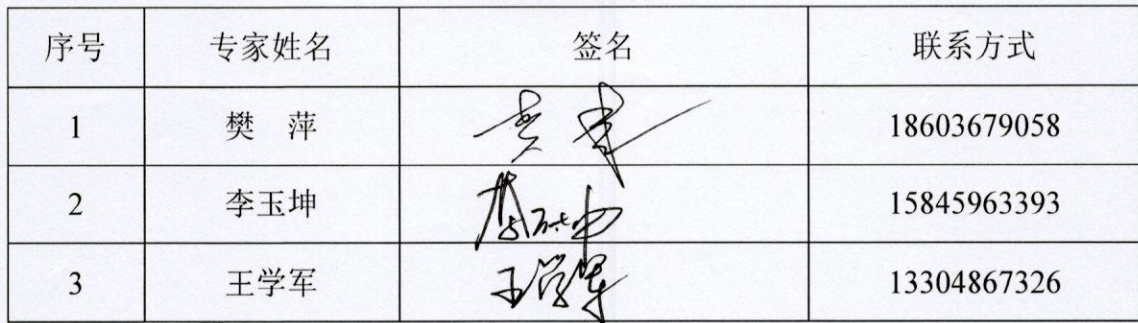 序号 专家姓名 签名 联系方式
1 樊 萍 18603679058
2 李玉坤 15845963393
3 王学军 王学军 13304867326